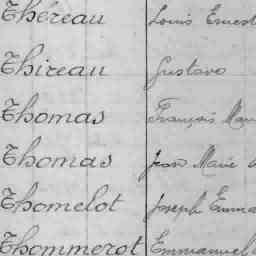 Théreau Louis Ernest
Thireau Gustave
Thomas François Marie
Thomas Jean Marie
Thomelot Joseph Emma
Thommerot Emmanuel